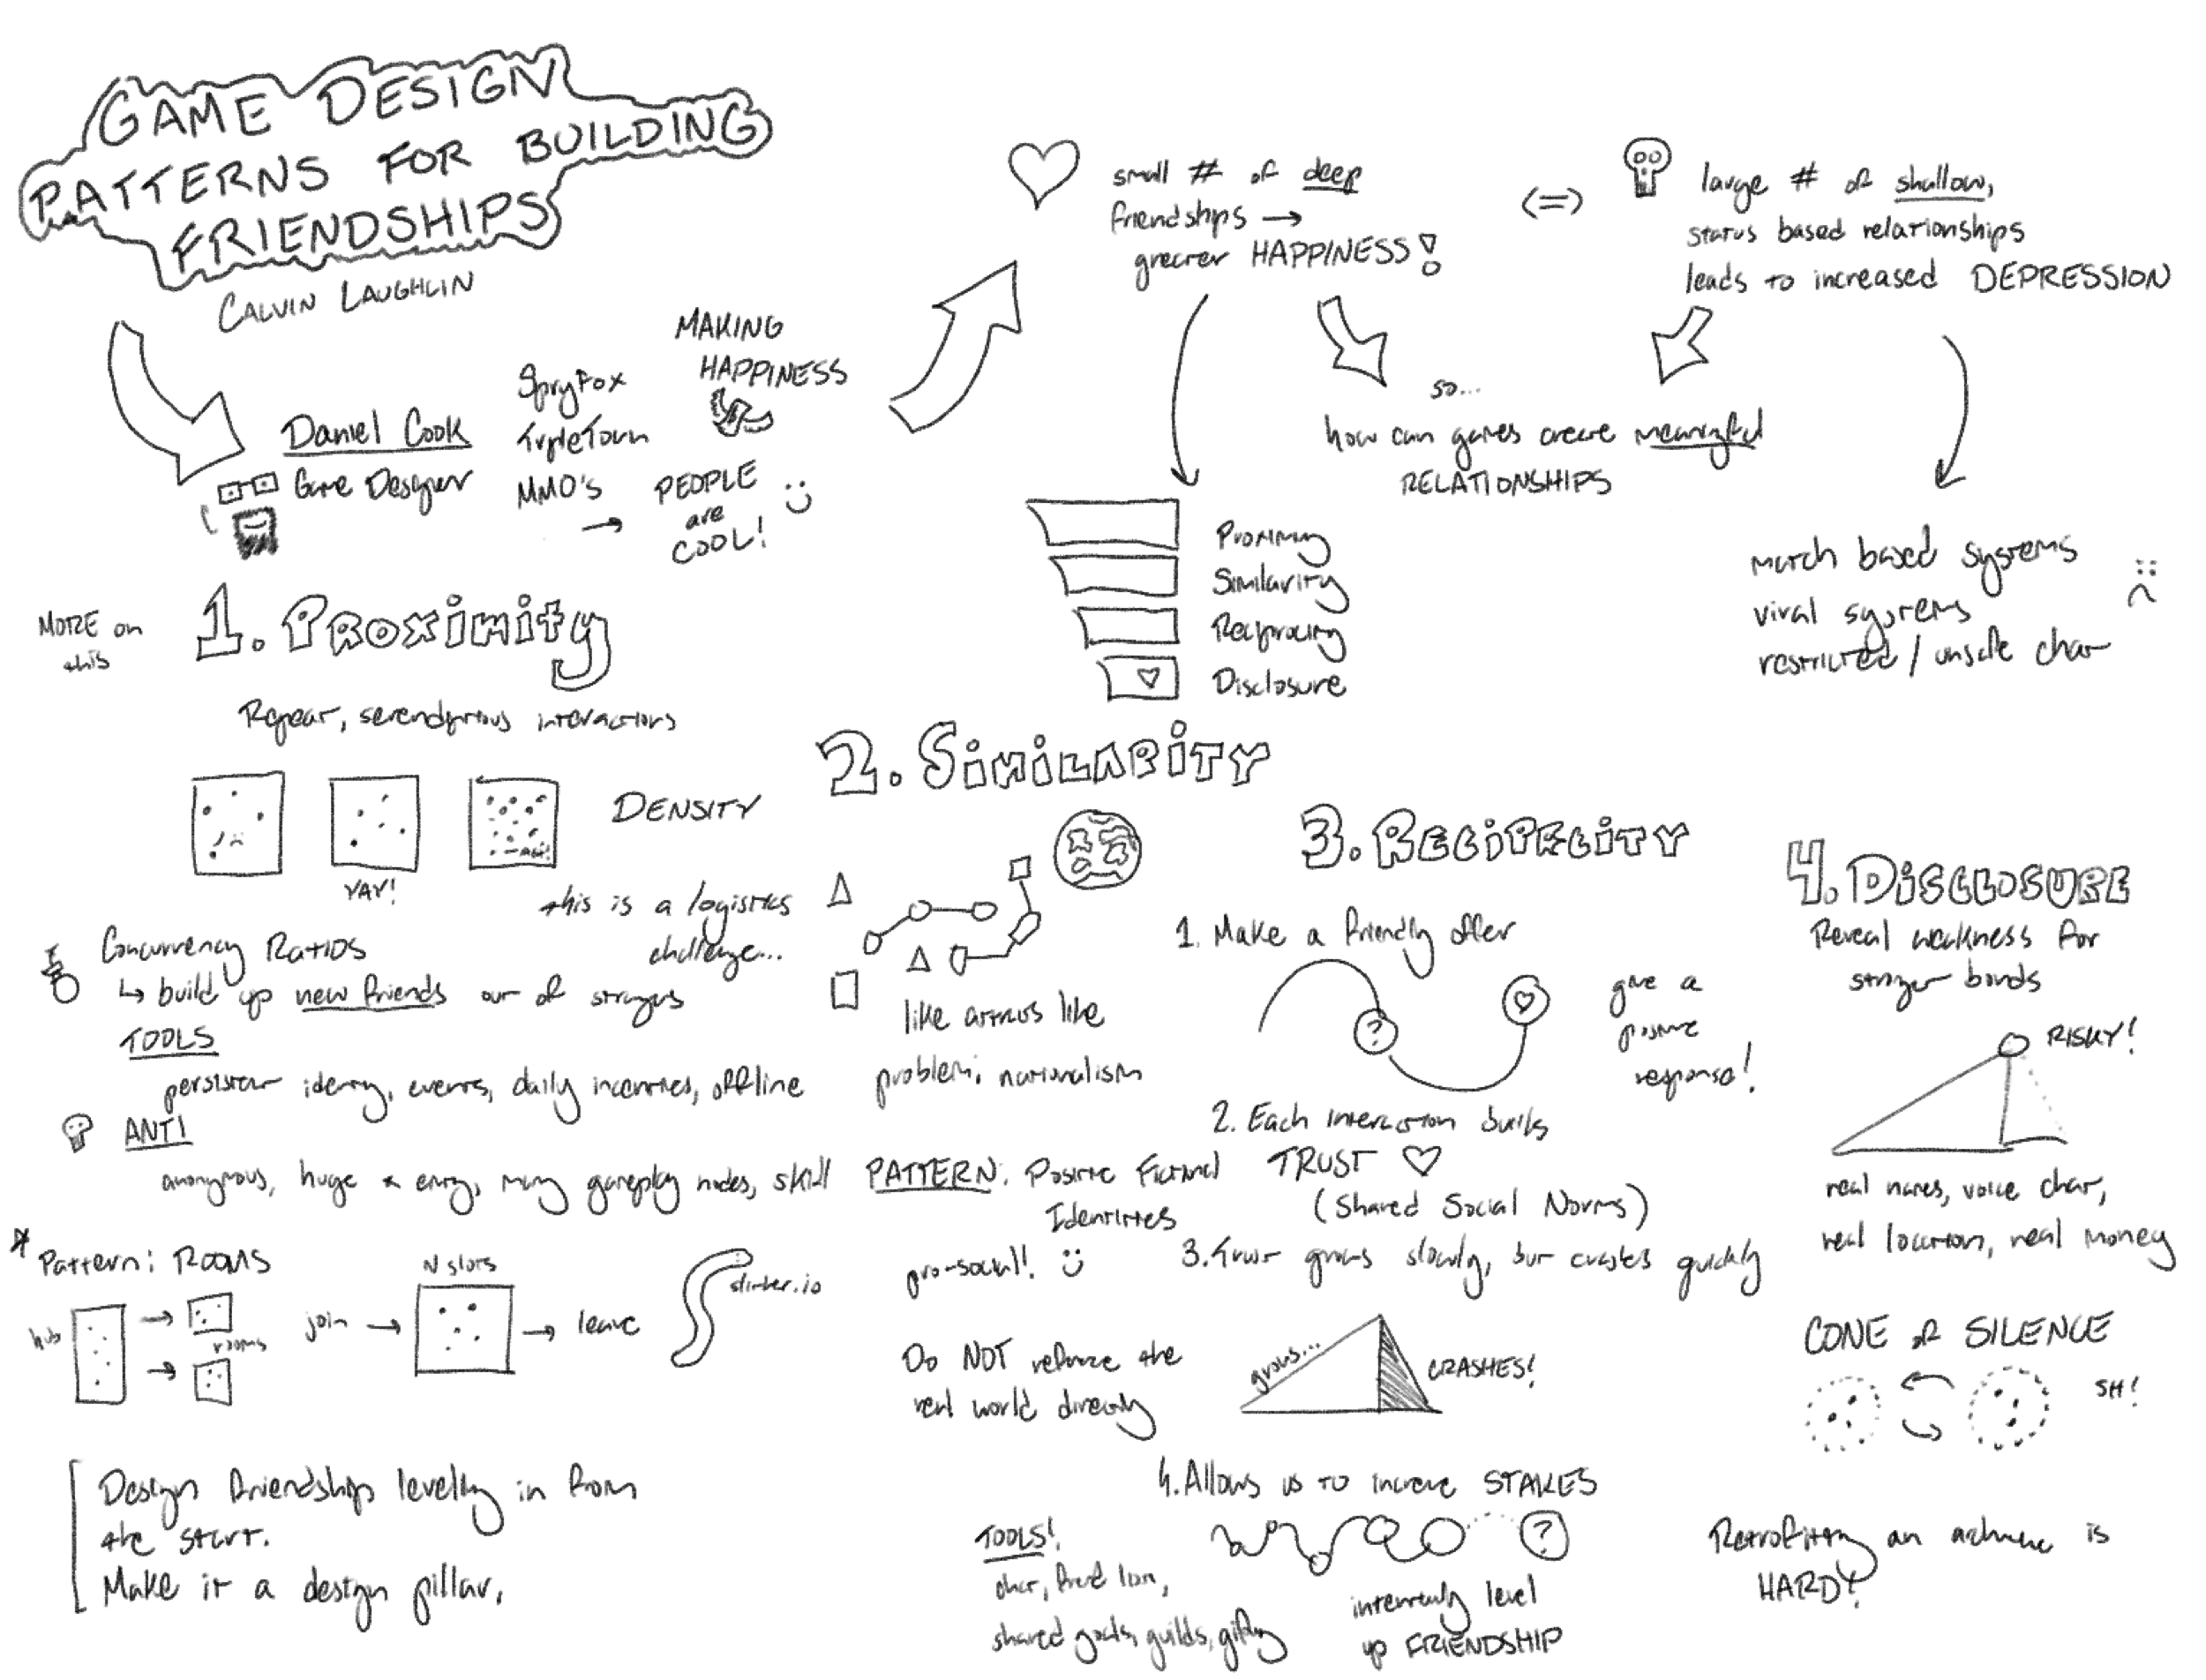 GAME DESIGN
PATTERNS FOR BUILDING
FRIENDSHIPS
CALVIN LAUGHLIN
Daniel Cook
Game Designer
SpryFox
TripleTown
MMO'S
→
MAKING
HAPPINESS
PEOPLE
are
COOL!
small # of deep
friendships →
greater HAPPINESS!
<=>
large # of shallow,
status based relationships
leads to increased DEPRESSION
so...
how can games create meaningful
RELATIONSHIPS
Proximity
Similarity
Reciprocity
Disclosure
match based systems
viral systems
restricted / unsafe chat
MORE on
this
1. PROXIMITY
Repeat, serendipitous interactions
YAY!
DENSITY
this is a logistics
challenge...
Concurrency RATIOS
↳ build up new friends out of strangers
TOOLS
persistent identity, events, daily incentives, offline
ANTI
anonymous, huge entry, many gameplay modes, skill
* Pattern: ROOMS
hub
rooms
join →
N slots
→ leave
slither.io
Design friendship leveling in from
the start.
Make it a design pillar.
2. SIMILARITY
like attracts like
problem: nationalism
PATTERN: Positive Fictional
Identities
pro-social!
Do NOT reference the
real world directly
3. RECIPRCITY
1. Make a friendly offer
?
give a
positive
response!
2. Each interaction builds
TRUST
(Shared Social Norms)
3. trust grows slowly, but crashes quickly
grows...
CRASHES!
4. Allows us to increase STAKES
?
TOOLS!
chat, friend list,
shared goals, guilds, gifting
intentionally level
up FRIENDSHIP
4. DISCLOSURE
Reveal weakness for
stronger bonds
RISKY!
real names, voice chat,
real location, real money
CONE of SILENCE
SH!
Retrofitting an is
HARD!